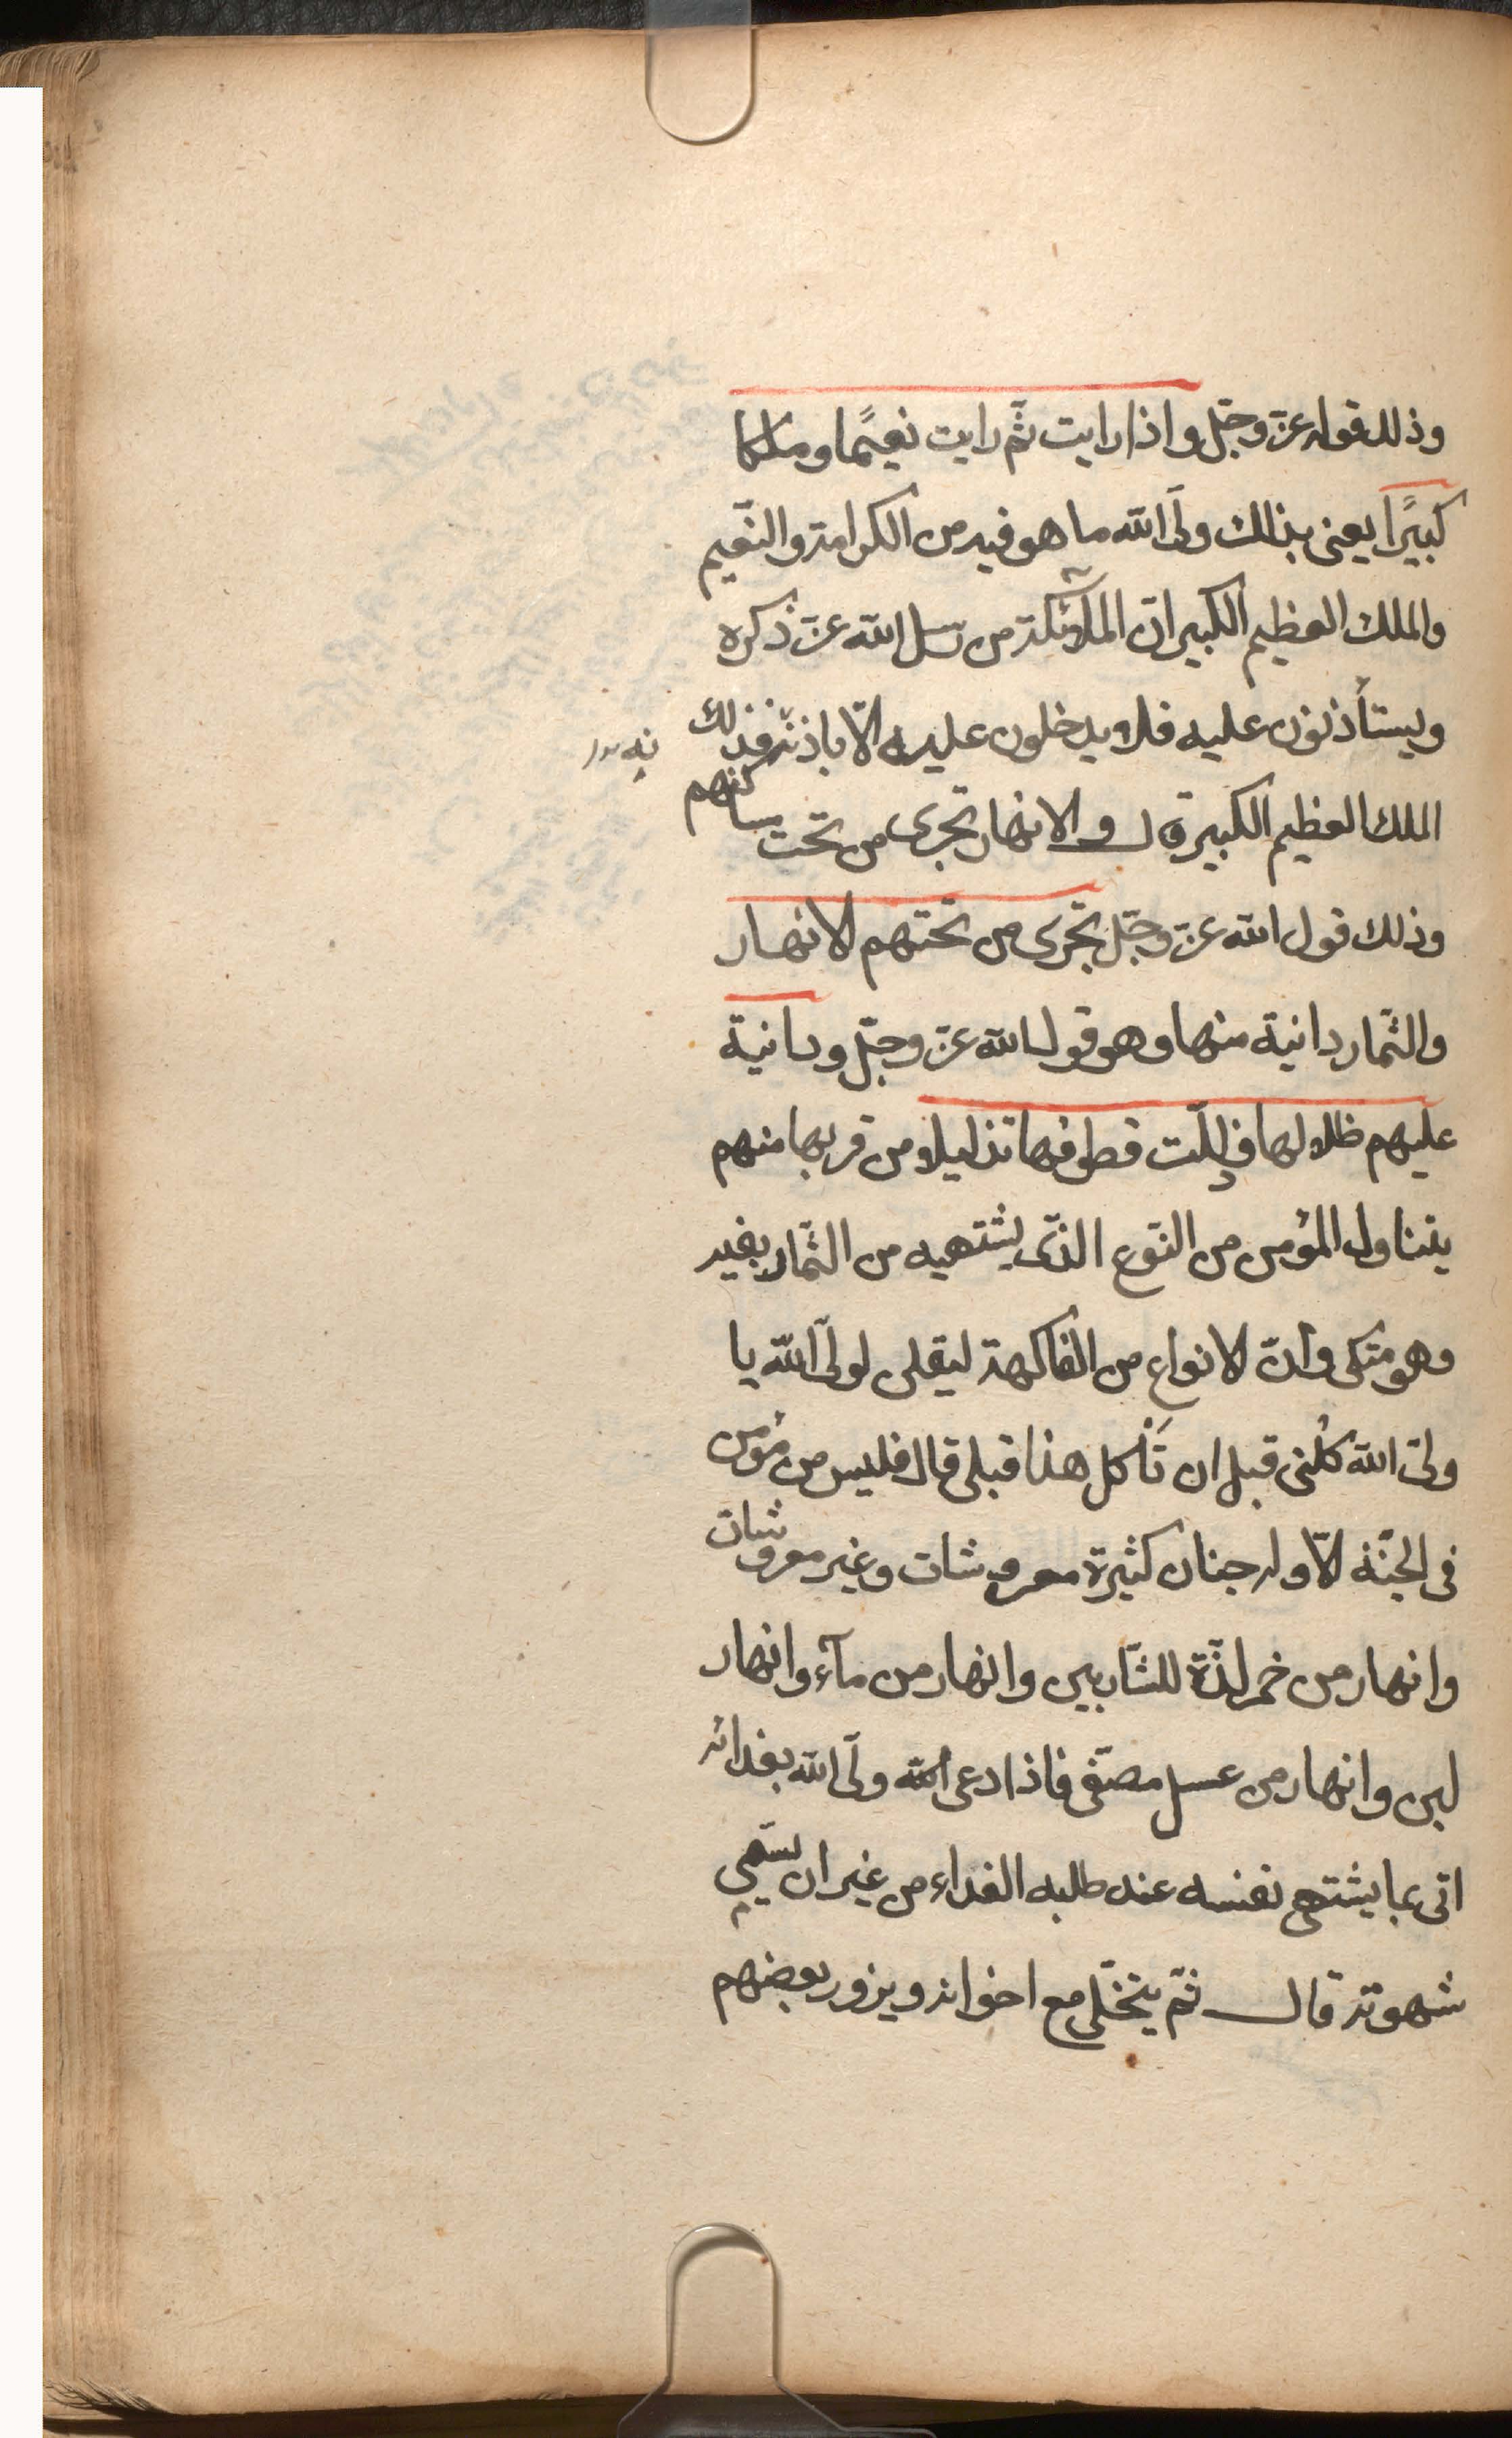 وذلك قوله عزّ وجلّ واذا رايت ثَمّ رايت نعيمًا وملكا
كبيرًا يعنى بذلك ولىّ الله ما هو فيه من الكرامة والنّعيم
والملك العظيم الكبير انّ الملآئكة من رسل الله عزّ ذكره
ويستأذنون عليه فلا يدخلون عليه الّا باذنه فذلك
الملك العظيم الكبير قال والانهار تجرى من تحت مساكنهم
وذلك قول الله عزّ وجلّ تجرى من تحتهم الانهار
والثّمار دانية منها وهو قول الله عزّ وجلّ ودانية
عليهم ظلالها وذلّلت قطوفها تذليلا من قربها منهم
يتناول المؤمن من النّوع الذّى يشتهيه من الثّمار بفيه
وهو متكى وانّ الانواع من الفاكهة ليقلن لولىّ الله يا
ولىّ الله كُلنى قبل ان تَأكل هذا قبلى قال فليس من مؤمن
فى الجنّة الّا وله جنان كثيرة معروشات وغير معروشات
وانهار من خمر لذّة للشّاربين وانهار من مآء وانهار
لبن وانهار من عسل مصفّى فاذا دعى الله ولىّ الله بغدائه
اتى بما يشتهى نفسه عند طلبه الغداء من غير ان يسمّى
شهوته قال ثمّ يتخلّى مع اخوانه ويزور بعضهم